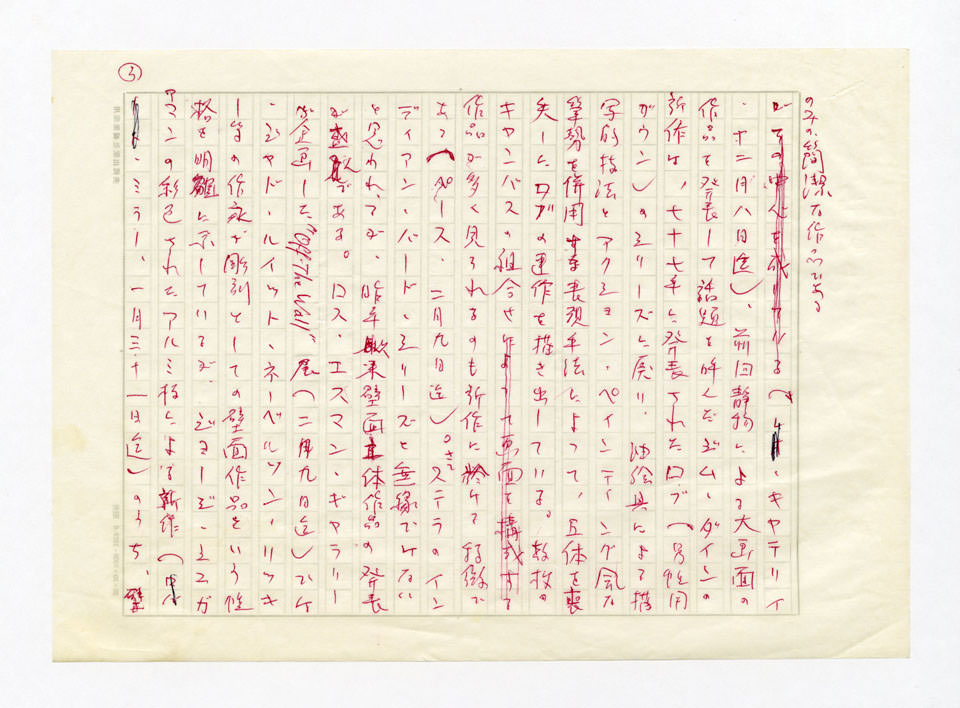 ③
のみの簡潔な作品である
がその中心を成している(・キャテリイ
・十二月八日迄)、前回静物による大画面の
作品を発表して話題を呼んだジム・ダインの
新作は、七十七年に発表されたロブ(男性用
ガウン)のシリーズに戻り、油絵具による描
写的技法とアクション・ペインティング風な
筆勢を併用する表現手法によって、五体を喪
失したロブの連作を描き出している。数枚の
キャンバスの組合せによって画面を構成する
作品が多く見られるのも新作に於ける特徴で
ある(ペース、二月九日迄)。さて ステラのイン
ディアン・バード・シリーズと無縁でけない
と思われるが、昨年来壁面立体作品の発表
が盛んである。ロス・エスマン・ギャラリー
が企画した"Off-The Wall"展(二月九日迄)でけ
・シャド・ルイット・ネーベルソン・リッキ
ー等の作家が彫刻としての壁面作品という性
格を明確に示しているが、ジョージ・シュガ
アマンの彩色されたアルミ板による新作(
・ミラー、一月三十一日迄)のうち、壁